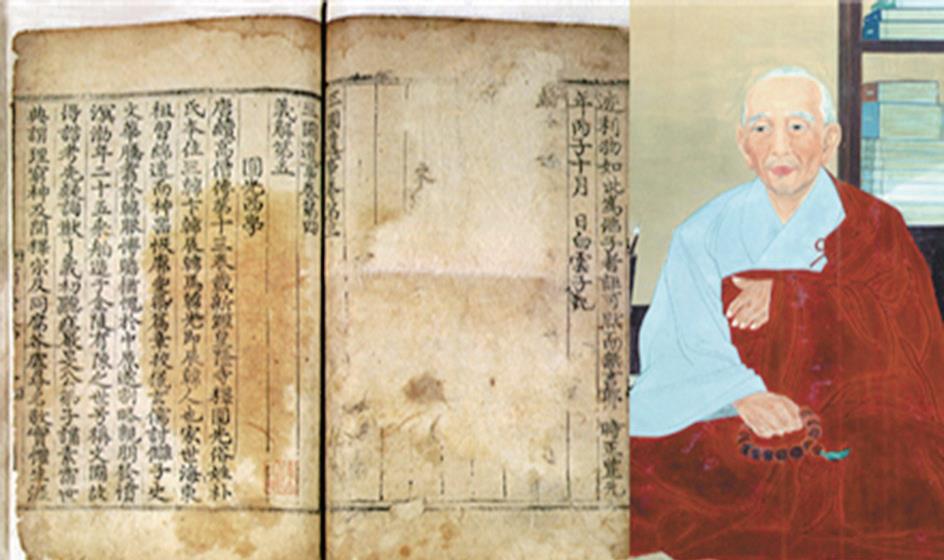 利物如此
年丙子十月 日白雲子記
三國遺事卷第
三國遺事卷第四
義解第五
圓光西學
唐續高僧傳第十三卷載新羅皇隆寺釋圓光俗姓朴
氏本住三韓卞韓辰韓馬韓光即辰韓人也家世海東
祖習綿遠而神器恢廓愛染篇章校獵玄儒討讎子史
文華騰翥於韓服博贍猶愧於中原遂割略親朋發憤
溟渤年二十五乘舶造于金陵有陳之世号稱文國故
得諮考先疑詢猷了義初聽莊嚴旻公弟子講素霑世
典謂理窮神及聞釋宗反同腐芥虛尋名教實懼生涯